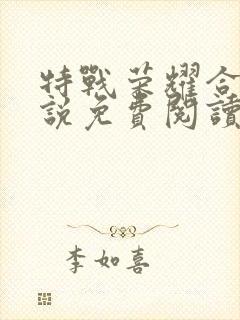 特戰荣耀合
説免費閱讀
李如喜